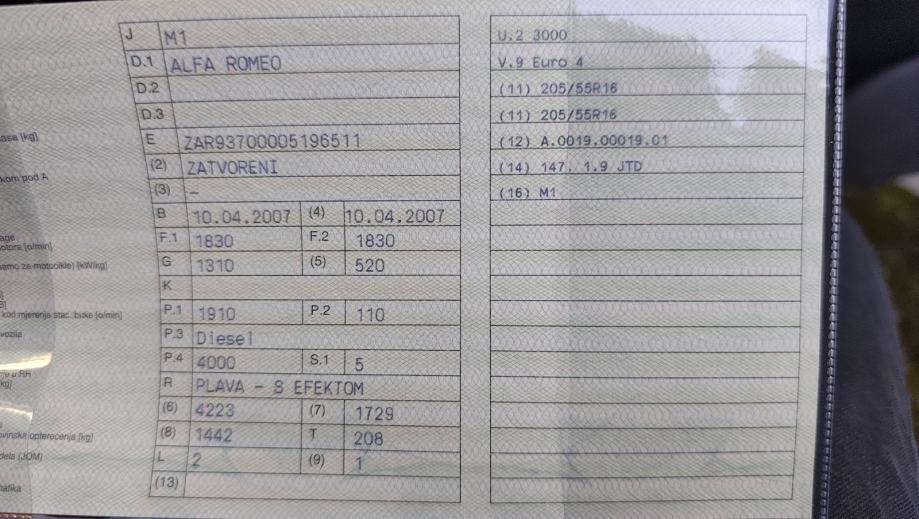 J M1
D.1 ALFA ROMEO
D.2
D.3
E ZAR93700005196511
(2) ZATVORENI
(3) –
B 10.04.2007 (4) 10.04.2007
F.1 1830 F.2 1830
G 1310 (5) 520
K
P.1 1910 P.2 110
P.3 Diesel
P.4 4000 S.1 5
R PLAVA - S EFEKTOM
(6) 4223 (7) 1729
(8) 1442 T 208
L 2 (9) 1
(13)
U.2 3000
V.9 Euro 4
(11) 205/55R16
(11) 205/55R16
(12) A.0019.00019.01
(14) 147. 1.9 JTD
(16) M1
[kg]
kom pod A
[o/min]
samo za motocikle) [kW/kg]
kod mjerenja stac. buke [o/min]
vozila
u RH
[kg]
opterećenja [kg]
(JOM)